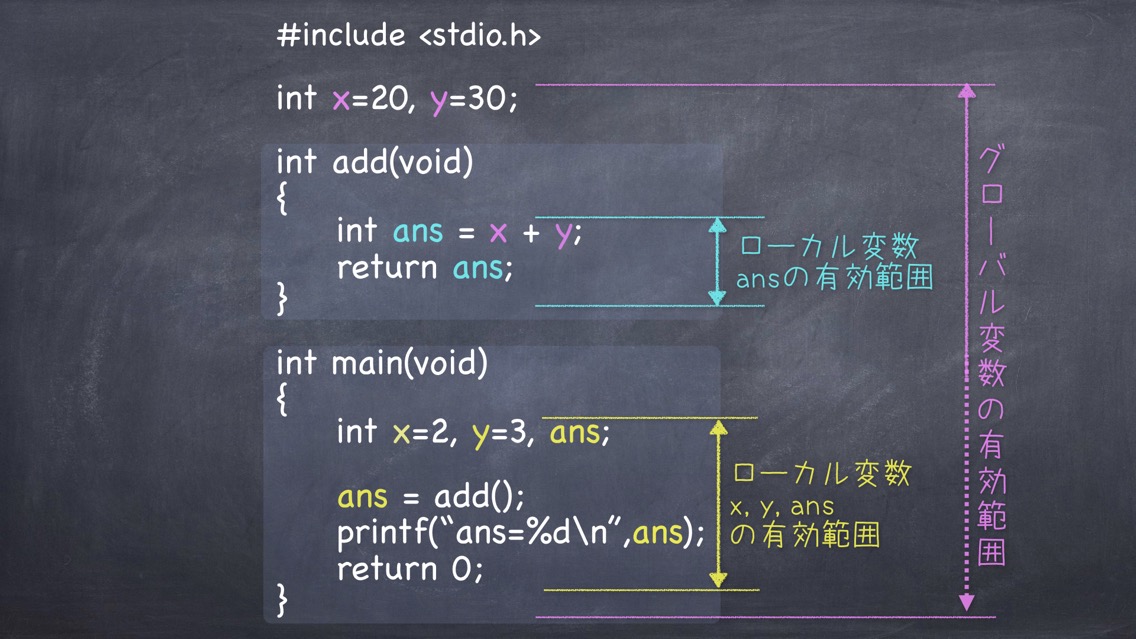 #include <stdio.h>
int x=20, y=30;
int add(void)
{
int ans = x + y;
return ans;
}
ローカル変数
ansの有効範囲
int main(void)
{
int x=2, y=3, ans;
ans = add();
printf(“ans=%d\n”,ans);
return 0;
}
ローカル変数
x, y, ans
の有効範囲
グローバル変数の有効範囲